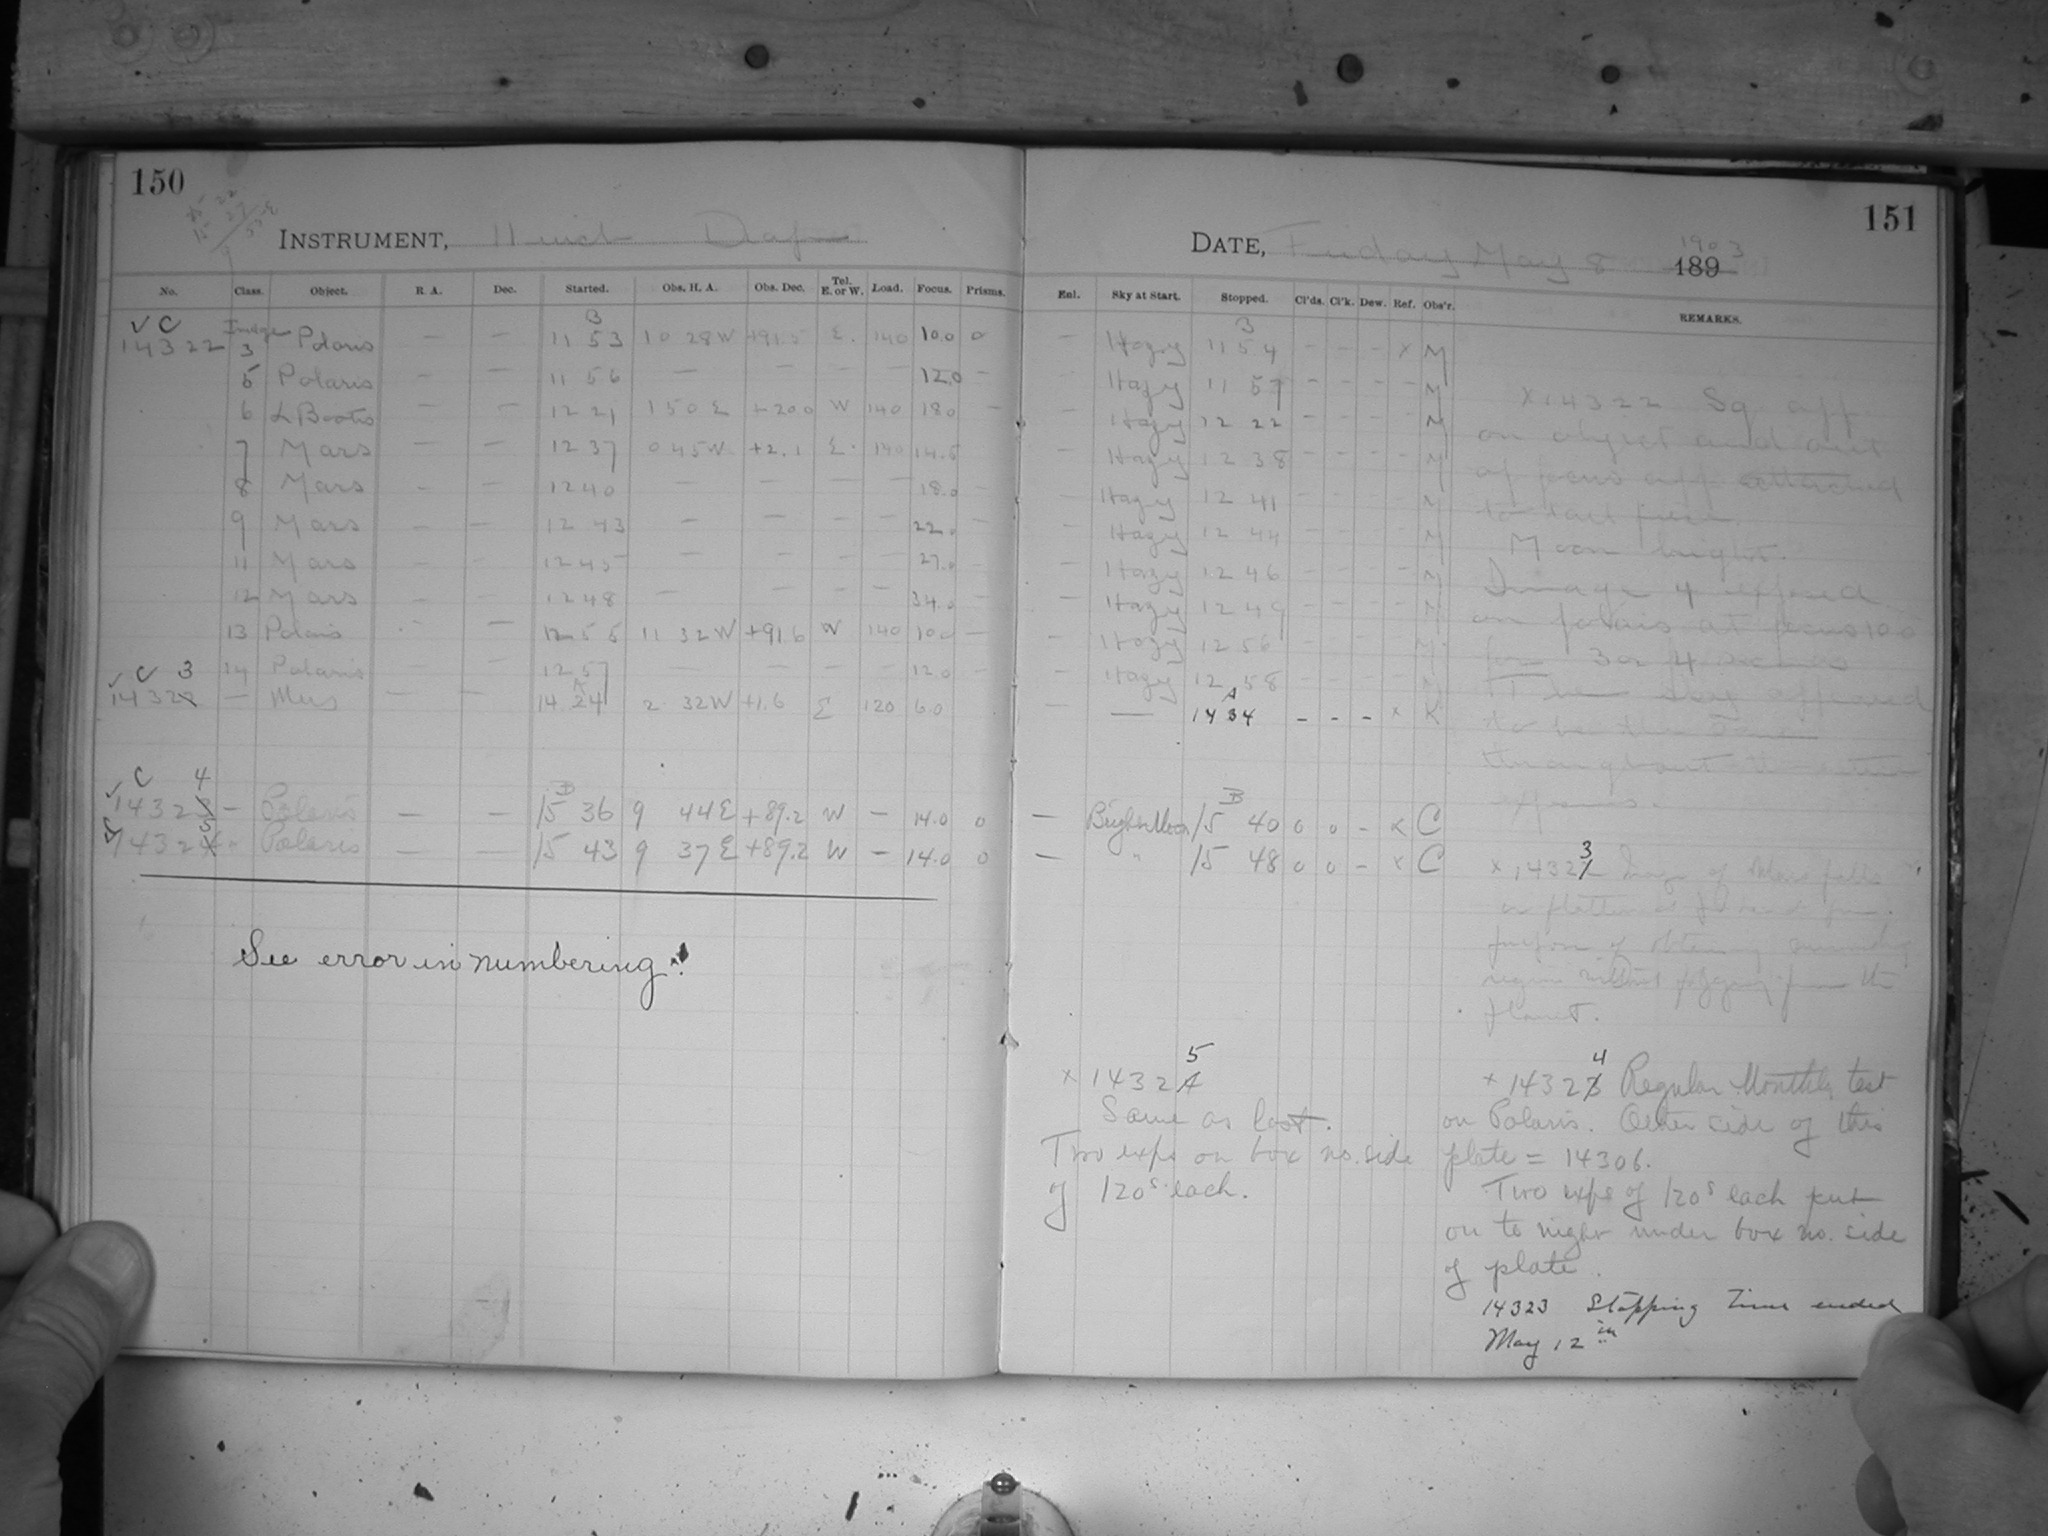 150
INSTRUMENT, 11 inch Draper
No. Class. Object. R A. Dec. Started. Obs. H. A. Obs. Dec. Tel. E. or W. Load. Focus. Prisms.
✓ C Image B
14322 3 Polaris — — 11 53 10 28 W +91.5 E. 140 10.0 0
5 Polaris — — 11 56 — — — — 12.0 —
6 α Bootis — — 12 21 1 50 E +20.0 W 140 18.0 —
7 Mars — — 12 37 0 45 W +2.1 E. 140 14.5
8 Mars — — 12 40 — — — — 18.0 —
9 Mars — — 12 43 — — — — 22.0 —
11 Mars — — 12 45 — — — — 27.0 —
12 Mars — — 12 48 — — — — 34.0 —
13 Polaris — — 12 55 11 32 W +91.6 W 140 10.0 —
14 Polaris — — 12 57 — — — — 12.0 —
✓ C 3 A
14322 — Mars — — 14 24 2 32 W +1.6 E 120 6.0
✓ C 4 B
14323 — Polaris — — 15 36 9 44 E +89.2 W — 14.0 0
✓ C 5
14324 " Polaris — — 15 43 9 37 E +89.2 W — 14.0 0
See error in numbering.
151
DATE, Friday May 8 189 1903
Enl. Sky at Start. Stopped. Cl'ds. Cl'k. Dew. Ref. Obs'r. REMARKS.
B
— Hazy 11 54 - - - x M
— Hazy 11 57 - - - - M
— Hazy 12 22 - - - - M
— Hazy 12 38 - - - - M
— Hazy 12 41 - - - - M
— Hazy 12 44 - - - - M
— Hazy 12 46 - - - - M
— Hazy 12 49 - - - - M
— Hazy 12 56 - - - - M
— Hazy 12 58 - - - - M
A
— — 14 34 - - - x K
B
— Bright Moon 15 40 0 0 - x C
— " 15 48 0 0 - x C
x 14322 Sq. app
on object and out
of focus app attached
to tail piece.
Moon bright.
Image 4 exposed
on polaris at focus 10.0
for 3 or 4 seconds
The sky appeared
to be the same
throughout the
3
x 14322 Image of Mars falls
purpose of obtaining surrounding
region without fogging from the
planet.
5
x 14324
Same as last.
Two exps on box no. side
of 120s each.
4
x 14323 Regular Monthly test
on Polaris. Other side of this
plate = 14306.
Two exps of 120s each put
on to night under box no. side
of plate.
14323 Stopping Time ended
May 12 in